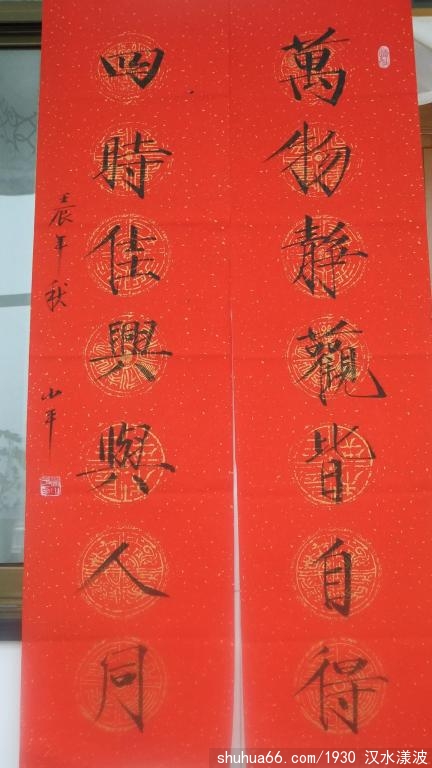 萬物靜觀皆自得
四時佳興與人同
壬辰年秋 小平
shuhua66.com/1930 汉水漾波